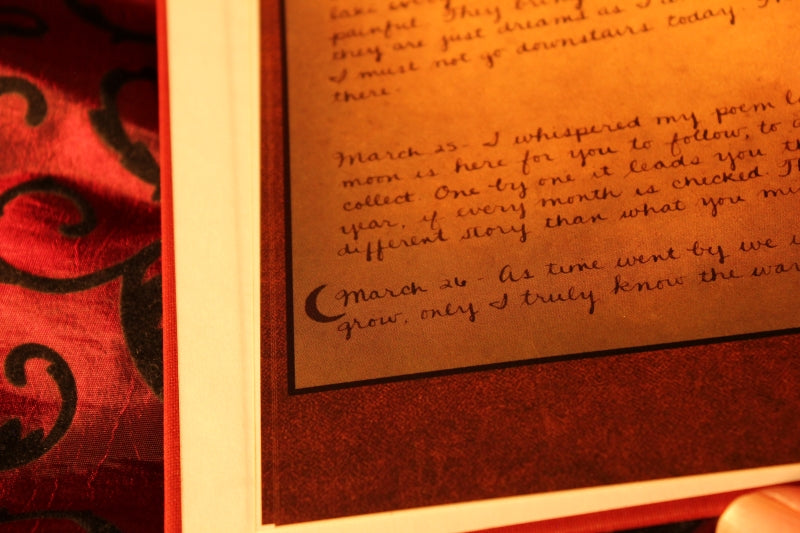 lake
painful. They bring
they are just dreams as I
I must not go downstairs today.
there.
March 25 - I whispered my poem
moon is here for you to follow, to
collect. One by one it leads you
year, if every month is checked.
different story than what you
March 26 - As time went by we
grow, only I truly know the